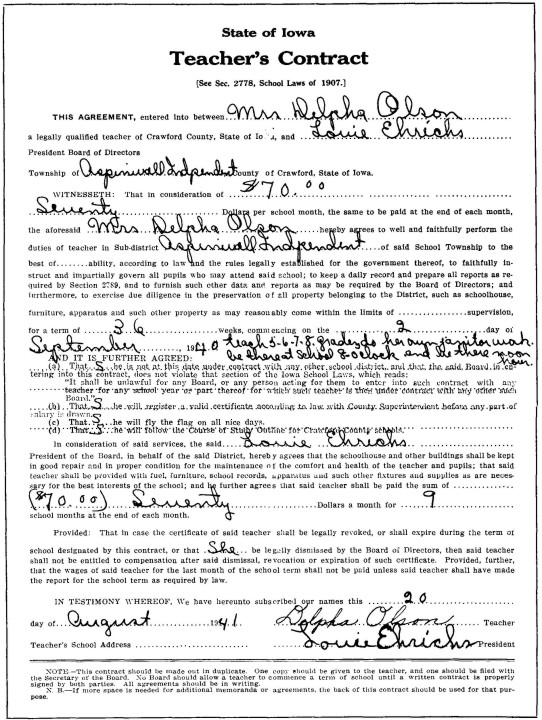 State of Iowa
Teacher's Contract
[See Sec. 2778, School Laws of 1907.]
THIS AGREEMENT, entered into between Mrs Delpha Olson
a legally qualified teacher of Crawford County, State of Iowa, and Louie Ehrichs
President Board of Directors
Township of Aspinwall Indpendent County of Crawford, State of Iowa.
WITNESSETH: That in consideration of $70.00
Seventy Dollars per school month, the same to be paid at the end of each month,
the aforesaid Mrs Delpha Olson hereby agrees to well and faithfully perform the
duties of teacher in Sub-district Aspinwall Indpendent of said School Township to the
best of ........ability, according to law and the rules legally established for the government thereof, to faithfully in-
struct and impartially govern all pupils who may attend said school; to keep a daily record and prepare all reports as re-
quired by Section 2789, and to furnish such other data and reports as may be required by the Board of Directors; and
furthermore, to exercise due diligence in the preservation of all property belonging to the District, such as schoolhouse,
furniture, apparatus and such other property as may reasonably come within the limits of .................supervision,
for a term of 36 weeks, commencing on the 2 day of
September, 1940 teach 5-6-7-8 grades do her own janitor work
AND IT IS FURTHER AGREED: be there at School 8 oclock and be there noon hour
(a) That S he is not at this date under contract with any other school district, and that the said Board in en-
tering into this contract, does not violate that section of the Iowa School Laws, which reads:
"It shall be unlawful for any Board, or any person acting for them to enter into such contract with any
teacher for any school year or part thereof for which such teacher is then under contract with any other such
Board."
(b) That S he will register a valid certificate according to law with County Superintendent before any part of
salary is drawn.
(c) That S he will fly the flag on all nice days.
(d) That S he will follow the Course of Study Outline for Crawford County schools.
In consideration of said services, the said Louie Ehrichs
President of the Board, in behalf of the said District, hereby agrees that the schoolhouse and other buildings shall be kept
in good repair and in proper condition for the maintenance of the comfort and health of the teacher and pupils; that said
teacher shall be provided with fuel, furniture, school records, apparatus and such other fixtures and supplies as are neces-
sary for the best interests of the school; and he further agrees that said teacher shall be paid the sum of
($70.00) Seventy Dollars a month for 9
school months at the end of each month.
Provided: That in case the certificate of said teacher shall be legally revoked, or shall expire during the term of
school designated by this contract, or that She be legally dismissed by the Board of Directors, then said teacher
shall not be entitled to compensation after said dismissal, revocation or expiration of such certificate. Provided, further,
that the wages of said teacher for the last month of the school term shall not be paid unless said teacher shall have made
the report for the school term as required by law.
IN TESTIMONY WHEREOF, We have hereunto subscribed our names this 20
day of August 1941. Delpha Olson Teacher
Teacher's School Address ........................ Louie Ehrichs President
NOTE.—This contract should be made out in duplicate. One copy should be given to the teacher, and one should be filed with
the Secretary of the Board. No Board should allow a teacher to commence a term of school until a written contract is properly
signed by both parties. All agreements should be in writing.
N. B.—If more space is needed for additional memoranda or agreements, the back of this contract should be used for that pur-
pose.